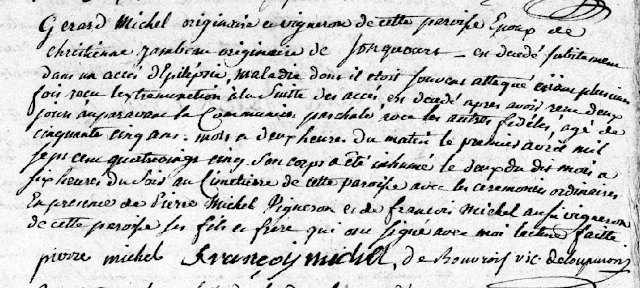 Gerard Michel originaire et vigneron de cette paroisse Epoux de
chrétienne originaire de est decedé subitement
dans un accès d'Epilepsie, maladie dont il etoit souvent attaqué plusieurs
fois recu lextremonction à la suitte des accès, en decedé apres avoir recu deux
jours auparavant la Communion paschale avec les autres fidèles, agé de
cinquante cinq ans mort a deux heures du matin le premier avril mil
sept cent quatrevingt cinq. Son corps a été inhumé le deux du dit mois a
six heures du soir au Cimetierre de cette paroisse avec les ceremonies ordinaires
En presence de Pierre Michel Vigneron et de françois Michel aussi vigneron
de cette paroisse ses fils et frere qui ont signé avec moi lecture faitte
pierre michel François michel, de vic